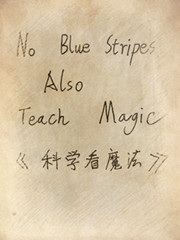 No Blue Stripes
Also
Teach Magic
《科学看魔法》